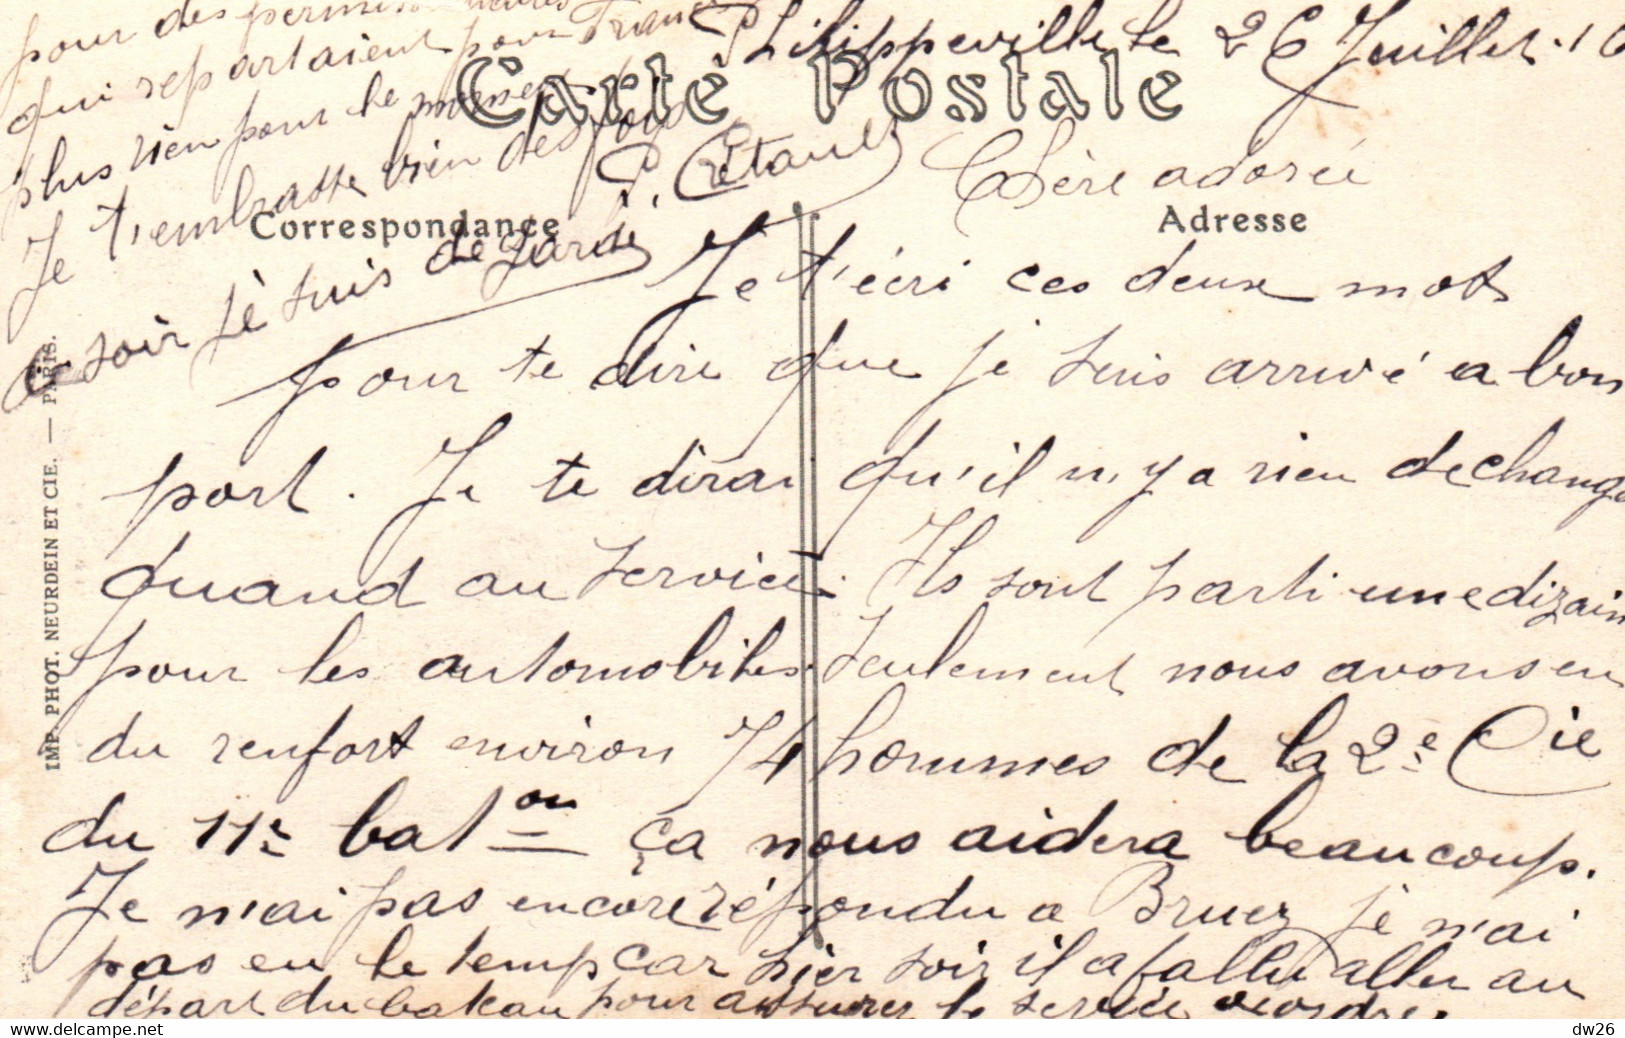 Philippeville le 26 Juillet 16
Carte Postale
Chère adorée
Correspondance
Adresse
Je t'écri ces deux mots
pour te dire que je suis arrivé a bon
port. Je te dirai qu'il n'y a rien de change
quand au service. Ils sont parti une dizain
pour les automobiles seulement nous avons eu
du renfort environ 74 hommes de la 2e Cie
du 11e bat on ça nous aidera beaucoup.
Je n'ai pas encore répondu a Bruez je n'ai
pas eu le temp car hier soir il a fallu aller au
départ du bateau pour assurer le service d'ordre
pour des permissionnaires
qui repartaient pour France
plus rien pour le moment
Je t'embrasse bien des fois
P. Crétault
Ce soir je suis de garde
IMP. PHOT. NEURDEIN ET CIE. — PARIS.
www.delcampe.net
dw26